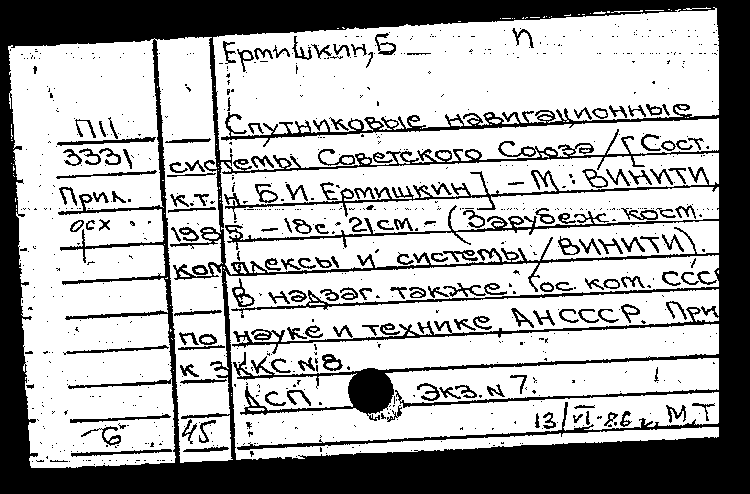 Ермишкин, Б П
ПII Спутниковые навигационные
3331 системы Советского Союза / [Сост.
Прил. к.т.н. Б.И. Ермишкин]. – М.: ВИНИТИ,
осх 1985. – 18с.; 21см. – (Зарубеж. косм.
комплексы и системы / ВИНИТИ).
В надзаг. также: Гос. ком. СССР
по науке и технике, АН СССР. При
к ЗККС. N 8.
ДСП. Экз. N 7.
6 45 13/VI-86 г. М.Т